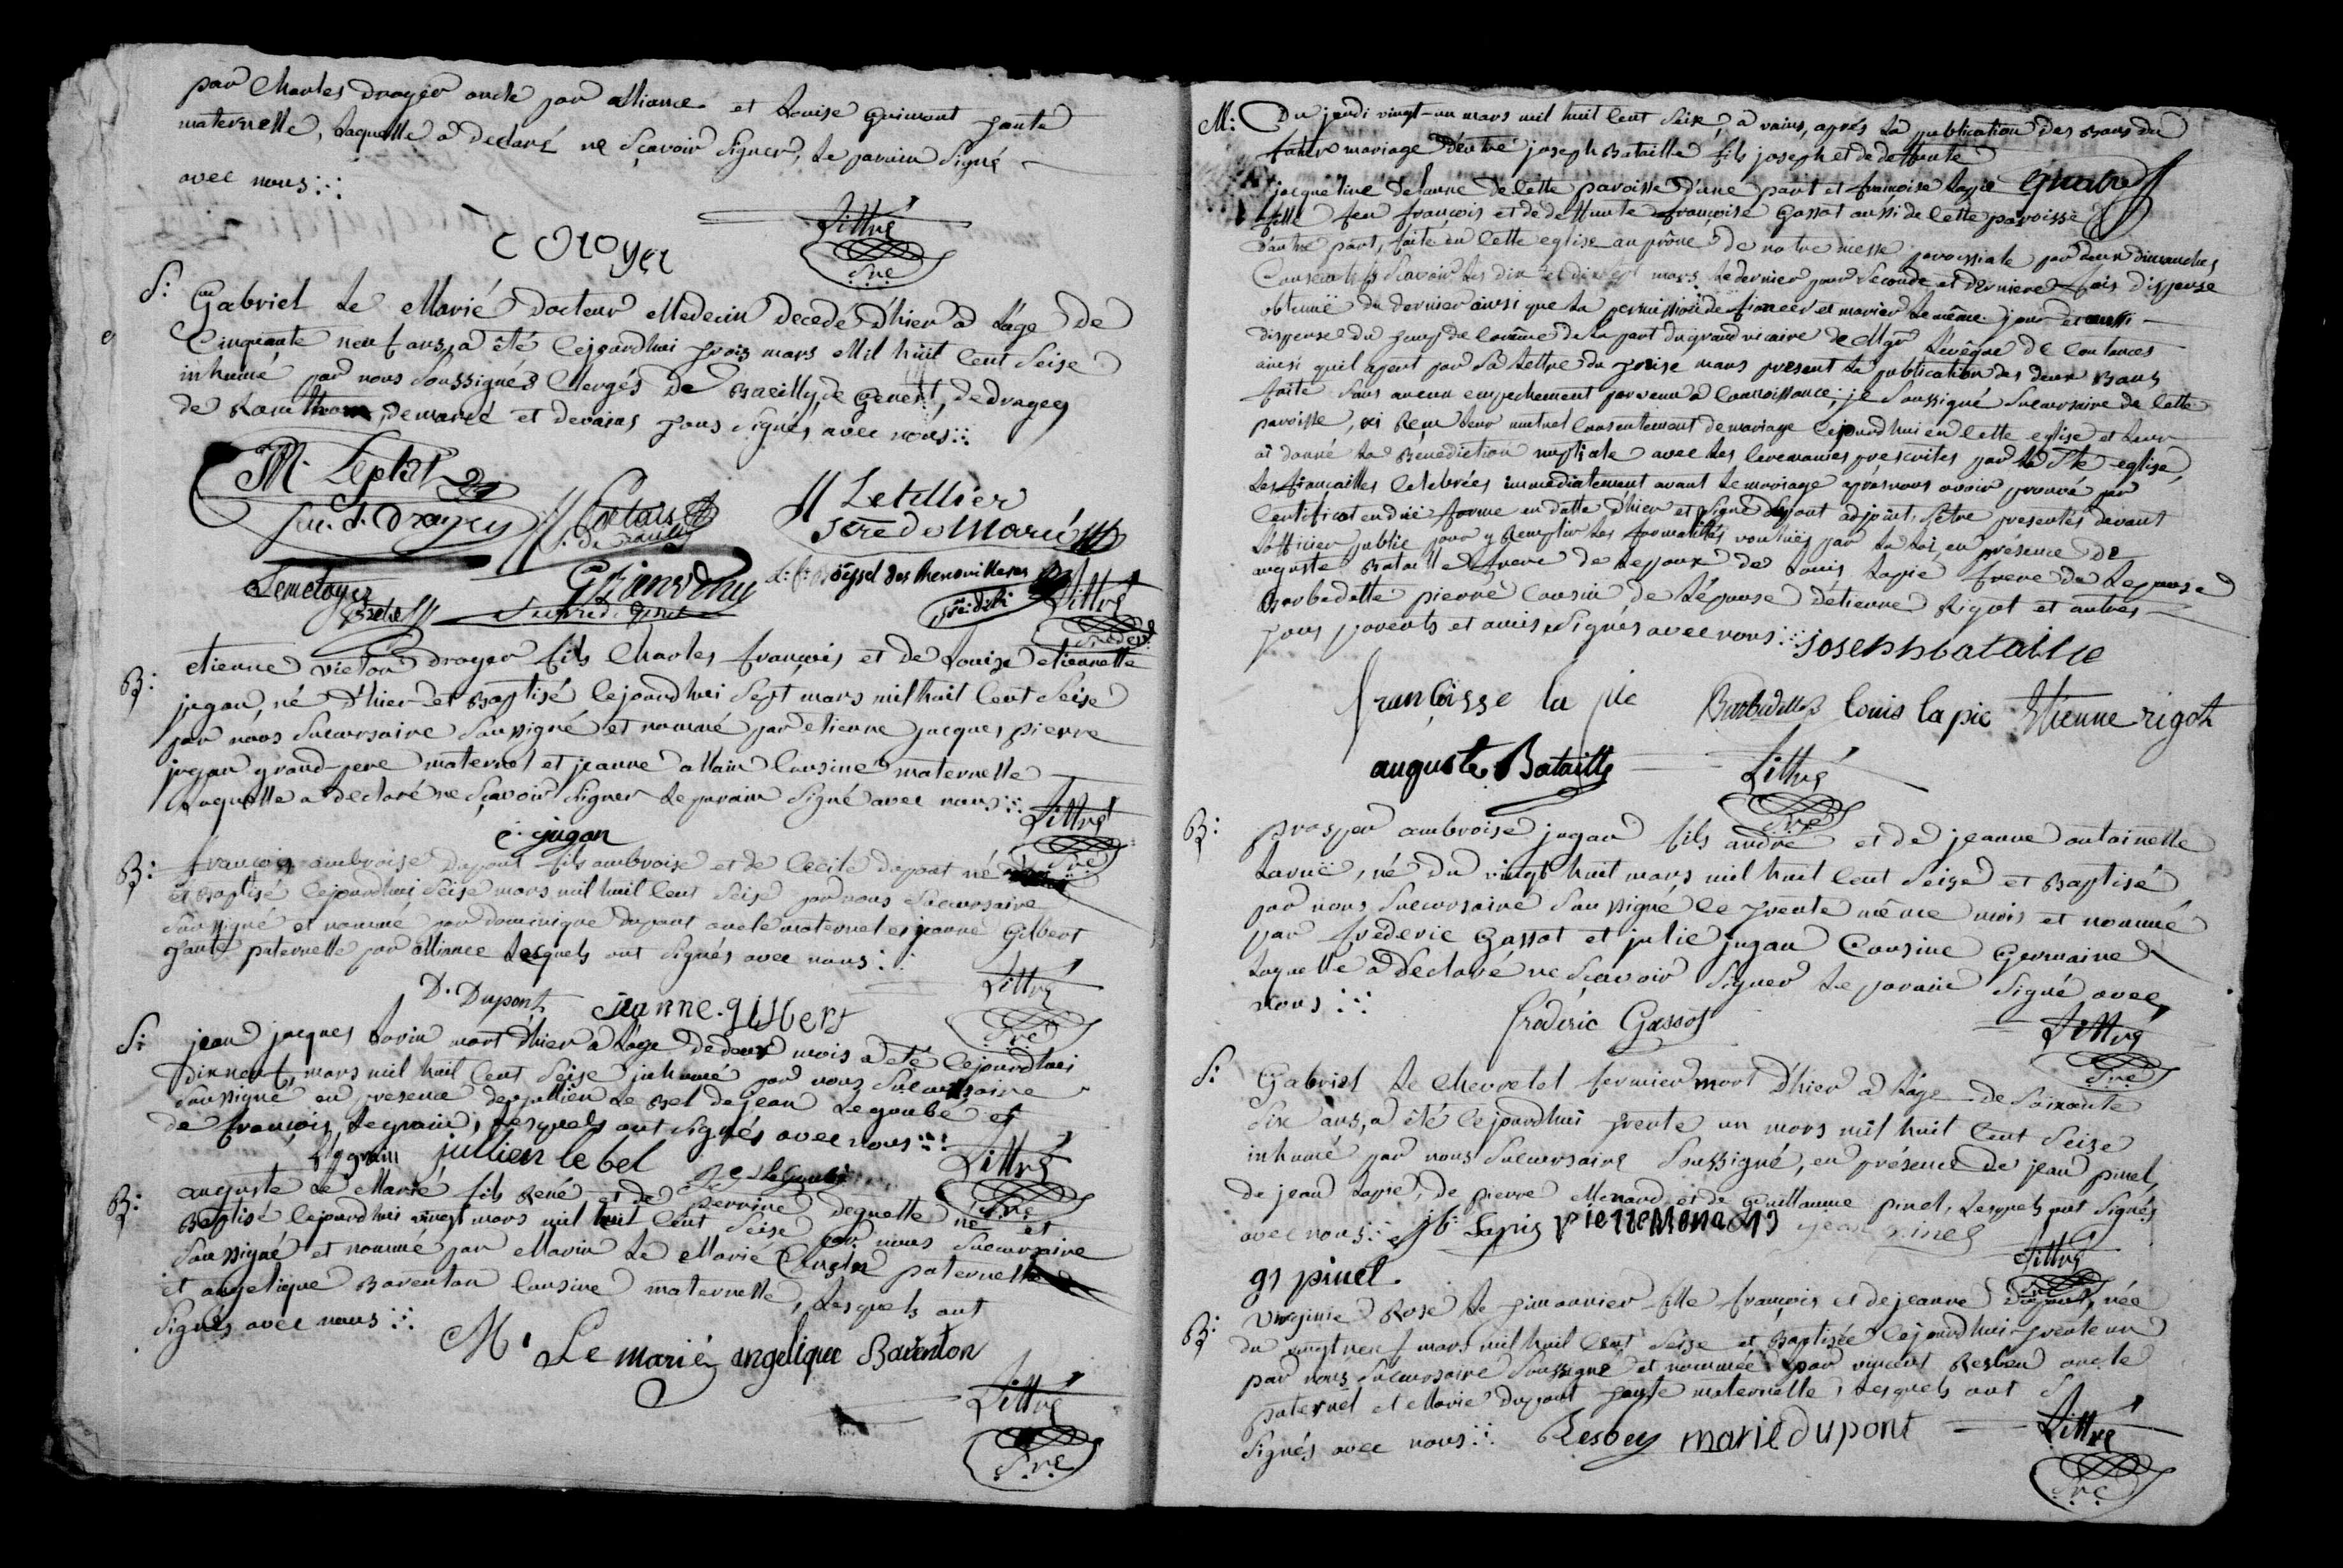 par Charles Drayer oncle par alliance et Louise Guimont tante
maternelle, Laquelle a declaré ne Sçavoir Signer, Le parain Signé
avec nous
C Droyer
Littré
Sre
S: Gabriel Le Marié Docteur Medecin decedé d'hier a L'age de
Cinquante neuf ans, a été Cejourdhui trois mars Mil huit Cent Seise
inhumé par nous Soussignés Clergés de Bacilly, de Genest, de dragey
de Ronthon, de marcé et devains tous Signés avec nous
M. Leplat
suc. d. Dragey
Letellier
sre de Marcé
Littré
etienne victor drayer fils Charles françois et de Louise etiennette
B:
jugan, né d'hier et Baptisé Cejourdhui Sept mars mil huit Cent Seise
par nous Sucursaire Soussigné et nommé par etienne jacques pierre
jugan grand-pere maternel et jeanne allain Cousine maternelle
Laquelle a declaré ne Sçavoir Signer Le parain Signé avec nous
Littré
e. jugan
Sre
B: françois ambroise Dupont fils ambroise et de Cecile dupont né
et Baptisé Cejourdhui Seise mars mil huit Cent Seise par nous Sucursaire
Soussigné et nommé par dominique dupont oncle maternel et jeanne Gilbert
tante paternelle par alliance Lesquels ont Signés avec nous
Littré
D. Dupont jeanne. gilbert
Sre
S: jean jacques Morin mort d'hier a L'age de deux mois a été Cejourdhui
dix neuf mars mil huit Cent Seise inhumé par nous Sucursaire
Soussigné en presence de jullien Le Bel de jean Le goubé et
de françois Legrain, Lesquels ont Signés avec nous
legrain jullien le bel
Littré
Sre
B: auguste Le Marié fils René et de perrine deguelle né et
Baptisé Cejourdhui vingt mars mil huit Cent Seise par nous Sucursaire
Soussigné et nommé par Marin Le Marié Cousin paternel
et angelique Baventon Cousine maternelle, Lesquels ont
Signés avec nous
M. Le marié angelique Baventon
Littré
Sre
M: Du jeudi vingt-un mars mil huit Cent Seise, a vains, après La publication des Bans du
futur mariage d'entre joseph Bataille fils joseph et de deffunte
jacqueline delanne de Cette paroisse d'une part et françoise Lapie
fille feu françois et de deffunte françoise Gassot aussi de Cette paroisse
d'autre part, faite en Cette eglise au prône de notre messe paroissiale par deux dimanches
Consecutifs Sçavoir Les dix et dix sept mars Le dernier pour Seconde et derniere fois dispense
obtenuë du dernier ainsi que La permission de fiancer et marier Le même jour
dispense du temps de Carême de La part du grand vicaire de Mgr L'evêque de Coutances
ainsi qu'il apert par Sa Lettre du treise mars present La publication des deux Bans
faite Sans aucun empechement parvenu a Connoissance; je Soussigné Sucursaire de Cette
paroisse, ai Reçu Leur mutuel Consentement de mariage Cejourdhui en Cette eglise et Leur
ai donné La Bénediction nuptiale avec Les Ceremonies prescrites par La Ste eglise,
Les fiançailles Celebrées immediatement avant Le mariage après nous avoir prouvé par
Certificat en duë forme en datte d'hier et Signé Dupont adjoint, S'etre presentés devant
L'officier public pour y Remplir Les formalités vouluës par La Loi, en présence de
auguste Bataille frere de L'epoux de Louis Lapie frere de L'epouse
Barbedette pierre Cousin de L'épouse d'étienne Rigot et autres
tous parents et amis Signés avec nous joseph bataille
françoisse la pie Barbedette louis la pie Etienne rigot
auguste Bataille Littré
Sre
B: prosper ambroise jugan fils andré et de jeanne antoinette
Laruë, né du vingt huit mars mil huit Cent Seise et Baptisé
par nous Sucursaire Soussigné le trente même mois et nommé
par frederic Gassot et julie jugan Cousine Germaine
Laquelle a declaré ne Scavoir Signer Le parain Signé avec
nous
frédéric Gassot
Littré
Sre
S: Gabriel Le Chevretel fermier mort d'hier a L'age de Soixante
dix ans, a été Cejourdhui trente un mars mil huit Cent Seise
inhumé par nous Sucursaire Soussigné, en présence de jean pinel,
de jean Lapie, de pierre Menard et de Guillaume pinel, Lesquels ont Signés
avec nous Lapie pierre Menard jean pinel
Littré
gs pinel.
B: virginie Rose Le timonnier fille françois et de jeanne dupont, née
du vingt neuf mars mil huit Cent Seise et Baptisée Cejourdhui trente un
par nous Sucursaire Soussigné et nommée par vincent Resbeu oncle
paternel et Marie Dupont tante maternelle, Lesquels ont
Signés avec nous Resbey marie dupont
Littré
Sre